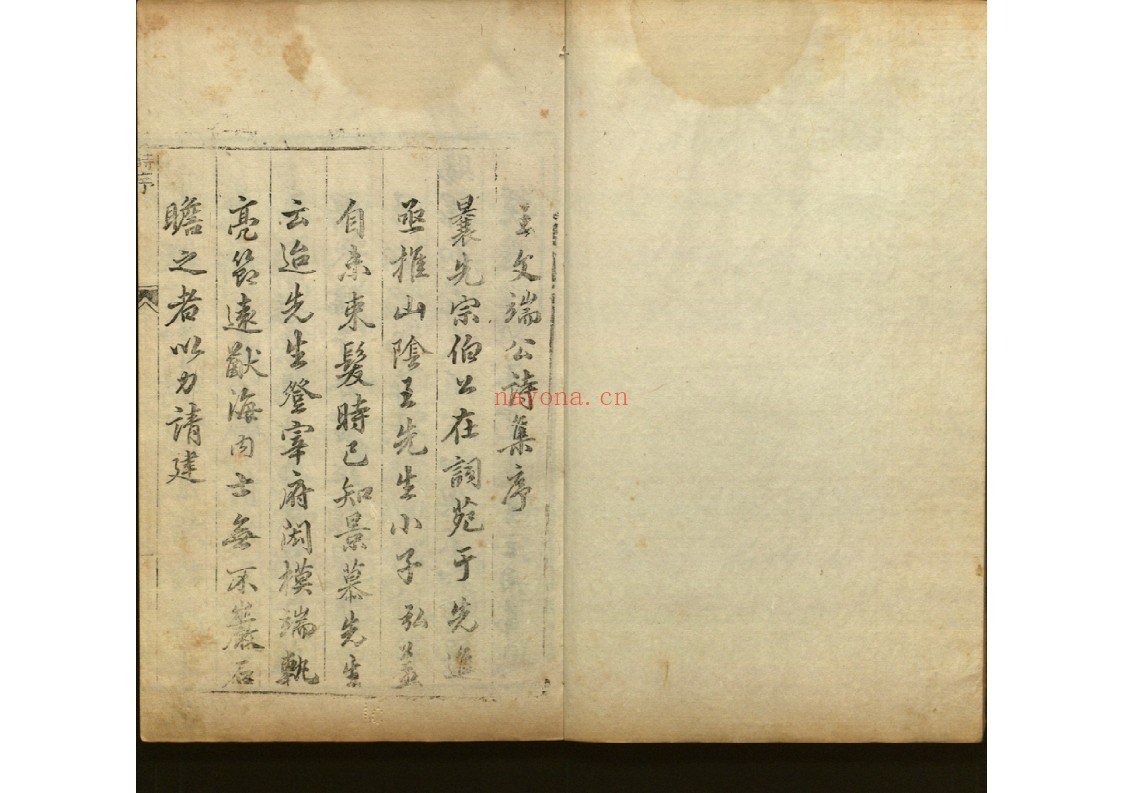 王文端公詩集序
曩先宗伯公在詞苑于先進
亟推山陰王先生小子弘益
自結束髮時已知景慕先生
云迨先生登宰府閎模端軌
亮節遠猷海內士無不巖石
瞻之者以力請建
詩序
nayona.cn